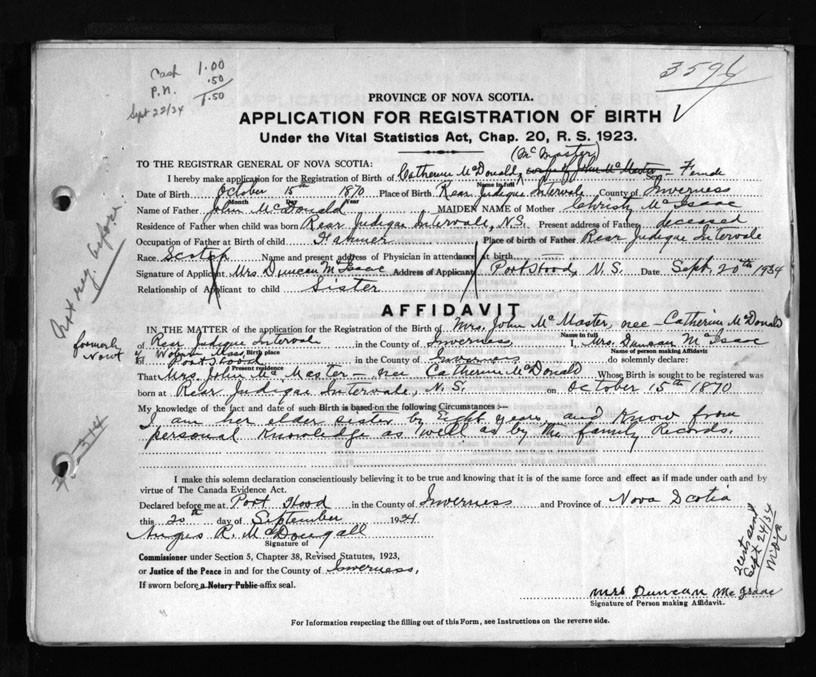 Cash 1.00
P.N. .50
Sept 22/34 1.50
3596
PROVINCE OF NOVA SCOTIA.
APPLICATION FOR REGISTRATION OF BIRTH
Under the Vital Statistics Act, Chap. 20, R. S. 1923.
(McMaster)
TO THE REGISTRAR GENERAL OF NOVA SCOTIA:
I hereby make application for the Registration of Birth of Catherine McDonald, John McMaster Female
Name in full
Date of Birth October 15th 1870 Place of Birth Rear Judique Intervale County of Inverness
Month Day Year
Name of Father John McDonald MAIDEN NAME of Mother Christy McIsaac
Residence of Father when child was born Rear Judique Intervale, N.S. Present address of Father deceased
Occupation of Father at Birth of child Farmer Place of birth of Father Rear Judique Intervale
Race Scotch Name and present address of Physician in attendance at birth
Signature of Applicant Mrs. Duncan McIsaac Address of Applicant Port Hood, N.S. Date Sept. 20th 1934
Relationship of Applicant to child Sister
Not reg. before.
AFFIDAVIT
IN THE MATTER of the application for the Registration of the Birth of Mrs. John McMaster, nee Catherine McDonald
Name in full
formerly of Rear Judique Intervale in the County of Inverness I, Mrs. Duncan McIsaac
Birth place Name of person making Affidavit
Now of Woburn Mass.
Port Hood in the County of Inverness do solemnly declare:
Present residence
That Mrs. John McMaster - nee Catherine McDonald Whose Birth is sought to be registered was
born at Rear Judique Intervale, N.S. on October 15th 1870
My knowledge of the fact and date of such Birth is based on the following Circumstances :—
I am her elder sister by Eight years, and Know from
personal Knowledge as well as by the family Records.
I make this solemn declaration conscientiously believing it to be true and knowing that it is of the same force and effect as if made under oath and by
virtue of The Canada Evidence Act.
Declared before me at Port Hood in the County of Inverness and Province of Nova Scotia
this 20th day of September 1934
Angus R. McDougall
Signature of
Commissioner under Section 5, Chapter 38, Revised Statutes, 1923,
or Justice of the Peace in and for the County of Inverness.
If sworn before a Notary Public affix seal.
Sept 24/34
Mrs Duncan McIsaac
Signature of Person making Affidavit.
For Information respecting the filling out of this Form, see Instructions on the reverse side.